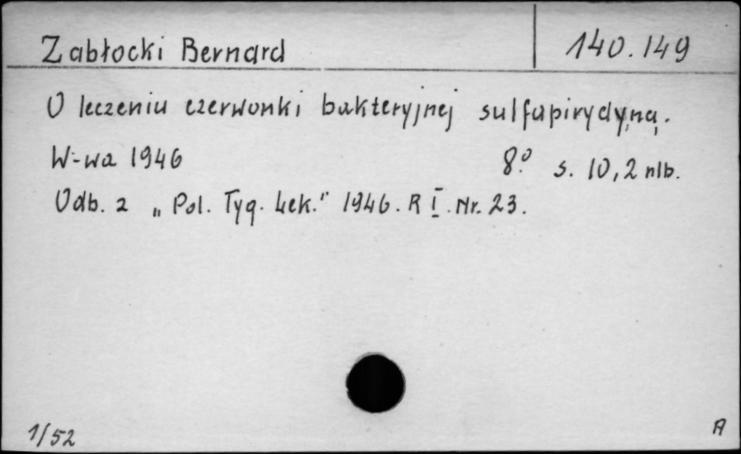 Zabłocki Bernard 140.149
O leczeniu czerwonki bakteryjnej sulfapirydyną.
W-wa 1946 8.° s. 10,2 nlb.
Odb. z „Pol. Tyg. Lek." 1946. R I. Nr. 23.
1/52 A